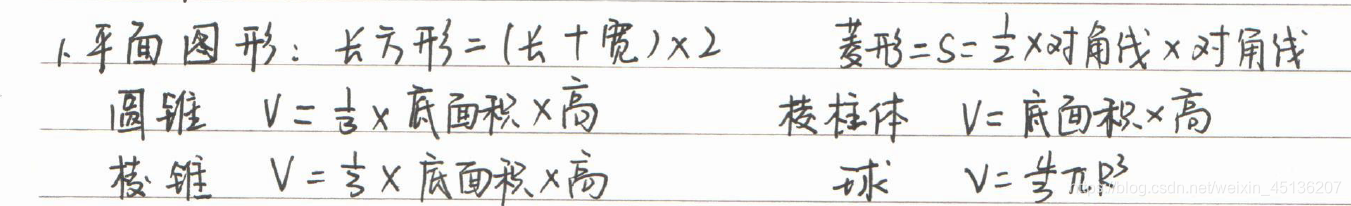 1. 平面图形：长方形=(长+宽)×2 菱形=S=1/2×对角线×对角线
圆锥 V=1/3×底面积×高 棱柱体 V=底面积×高
棱锥 V=1/3×底面积×高 球 V=4/3πR³
https://blog.csdn.net/weixin_45136207